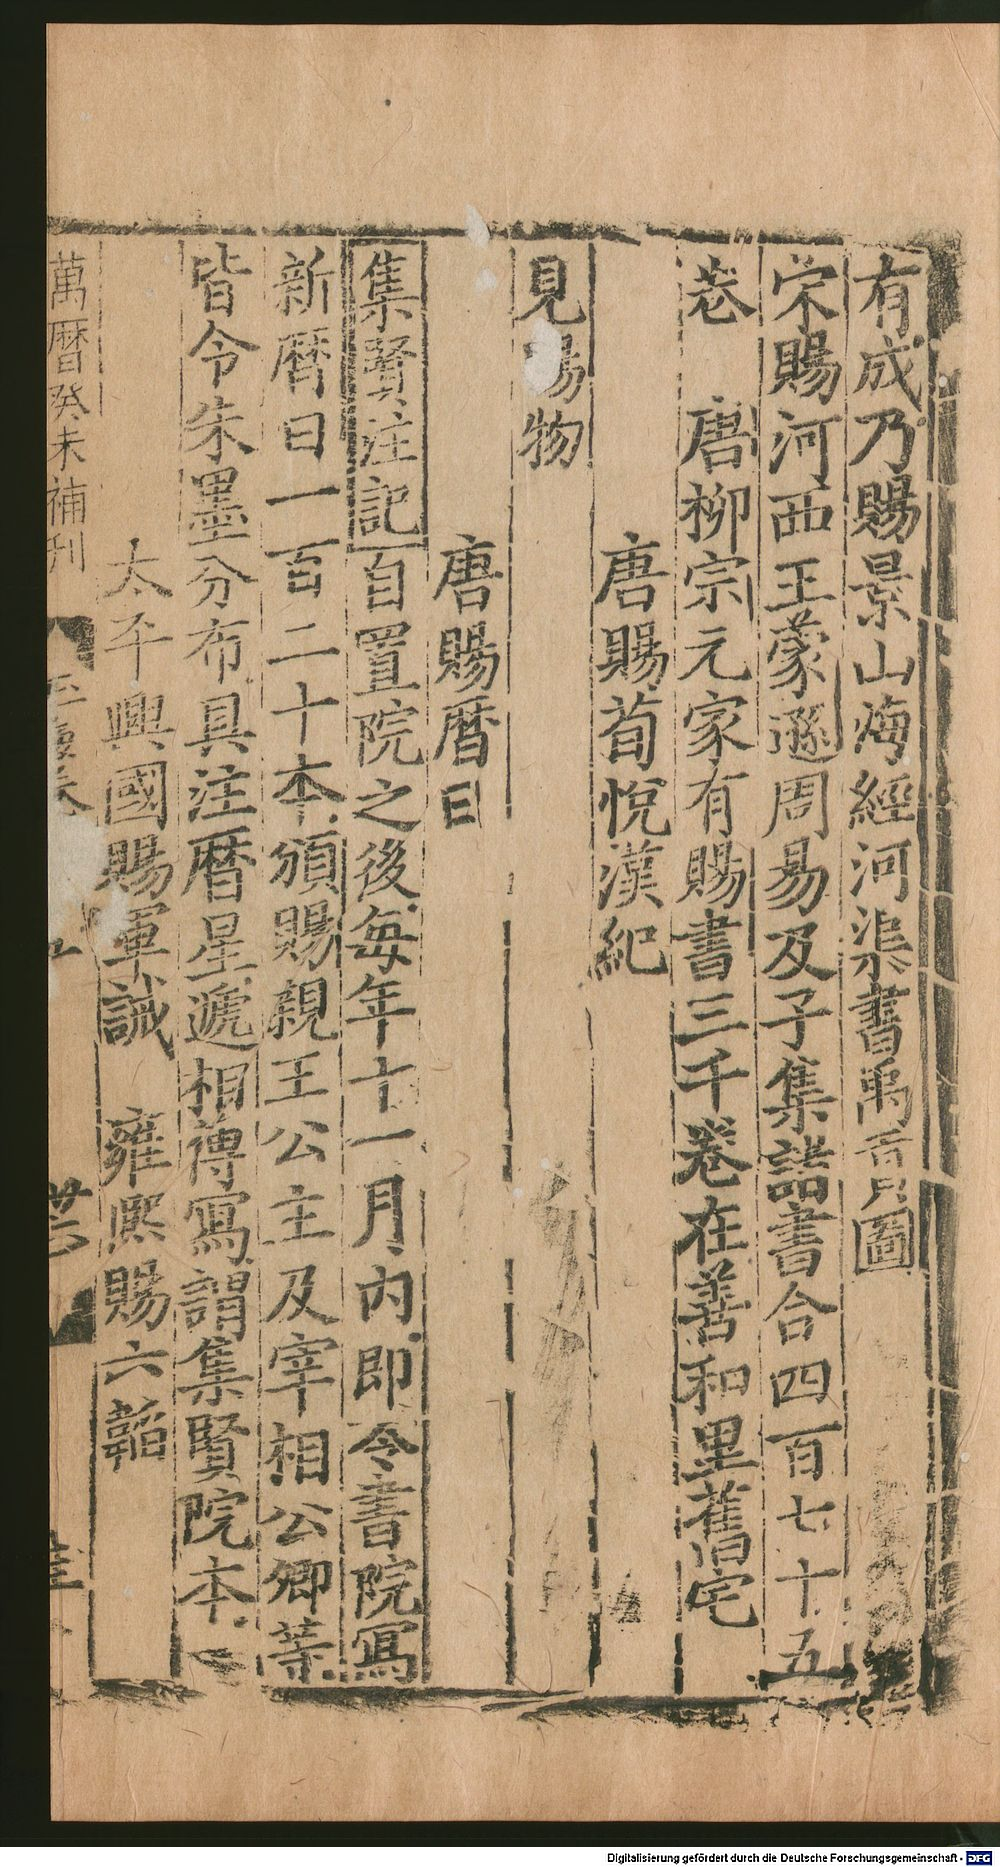 有成乃賜景山海經河渠書禹貢圖
宋賜河西王蒙遜周易及子集諸書合四百七十五
卷　唐柳宗元家有賜書三千卷在善和里舊宅
唐賜荀悅漢紀
見賜物
唐賜曆日
集賢注記自置院之後每年十一月內即令書院寫
新曆日一百二十本頒賜親王公主及宰相公卿等
皆令朱墨分布具注曆星遞相傳寫謂集賢院本
太平興國賜軍誡　雍熙賜六韜
萬曆癸未補刊
Digitalisierung gefördert durch die Deutsche Forschungsgemeinschaft - DFG